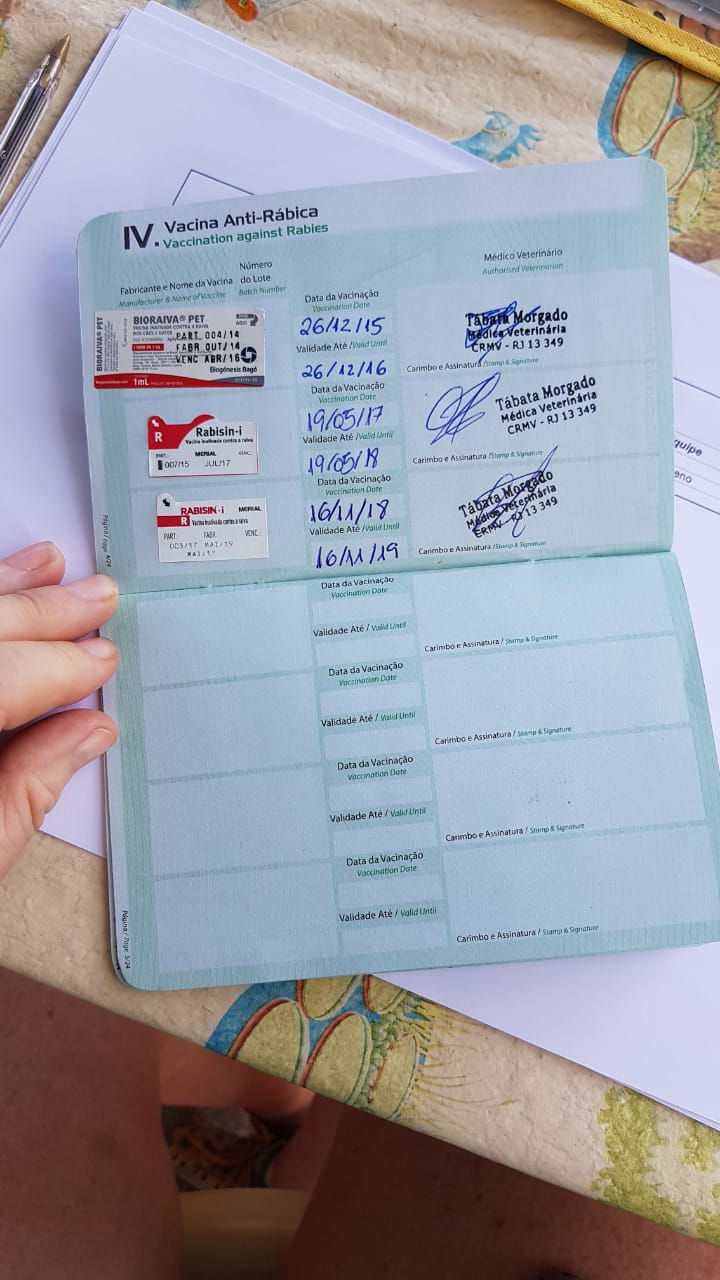 IV. Vacina Anti-Rábica
Vaccination against Rabies
Fabricante e Nome da Vacina
Manufacturer & Name of Vaccine
Número
do Lote
Batch Number
Data da Vacinação
Vaccination Date
Médico Veterinário
Authorised Veterinarian
BIORAIVA® PET
BIORAIVA® PET
VACINA INATIVADA CONTRA A RAIVA
DOS CÃES E GATOS
PART. 004/14
FABR OUT/14
VENC ABR/16
1mL
Biogénesis Bagó
26/12/15
Validade Até / Valid Until
26/12/16
Tábata Morgado
Médica Veterinária
CRMV - RJ 13 349
Carimbo e Assinatura / Stamp & Signature
R
Rabisin-i
Vacina inativada contra a raiva
PART. MERIAL VENC.
007/15 JUL/17
Data da Vacinação
Vaccination Date
19/05/17
Validade Até / Valid Until
19/05/18
Tábata Morgado
Médica Veterinária
CRMV - RJ 13 349
Carimbo e Assinatura / Stamp & Signature
RABISIN-i MERIAL
R Vacina inativada contra a raiva
PART.: FABR.: VENC.:
003/17 MAI/19
MAI/17
Data da Vacinação
Vaccination Date
16/11/18
Validade Até / Valid Until
16/11/19
Tábata Morgado
Médica Veterinária
CRMV - RJ 13 349
Carimbo e Assinatura / Stamp & Signature
Página / Page 4/24
Data da Vacinação
Vaccination Date
Validade Até / Valid Until
Carimbo e Assinatura / Stamp & Signature
Data da Vacinação
Vaccination Date
Validade Até / Valid Until
Carimbo e Assinatura / Stamp & Signature
Data da Vacinação
Vaccination Date
Validade Até / Valid Until
Carimbo e Assinatura / Stamp & Signature
Data da Vacinação
Vaccination Date
Validade Até / Valid Until
Carimbo e Assinatura / Stamp & Signature
Página / Page 5/24
quipe
eno